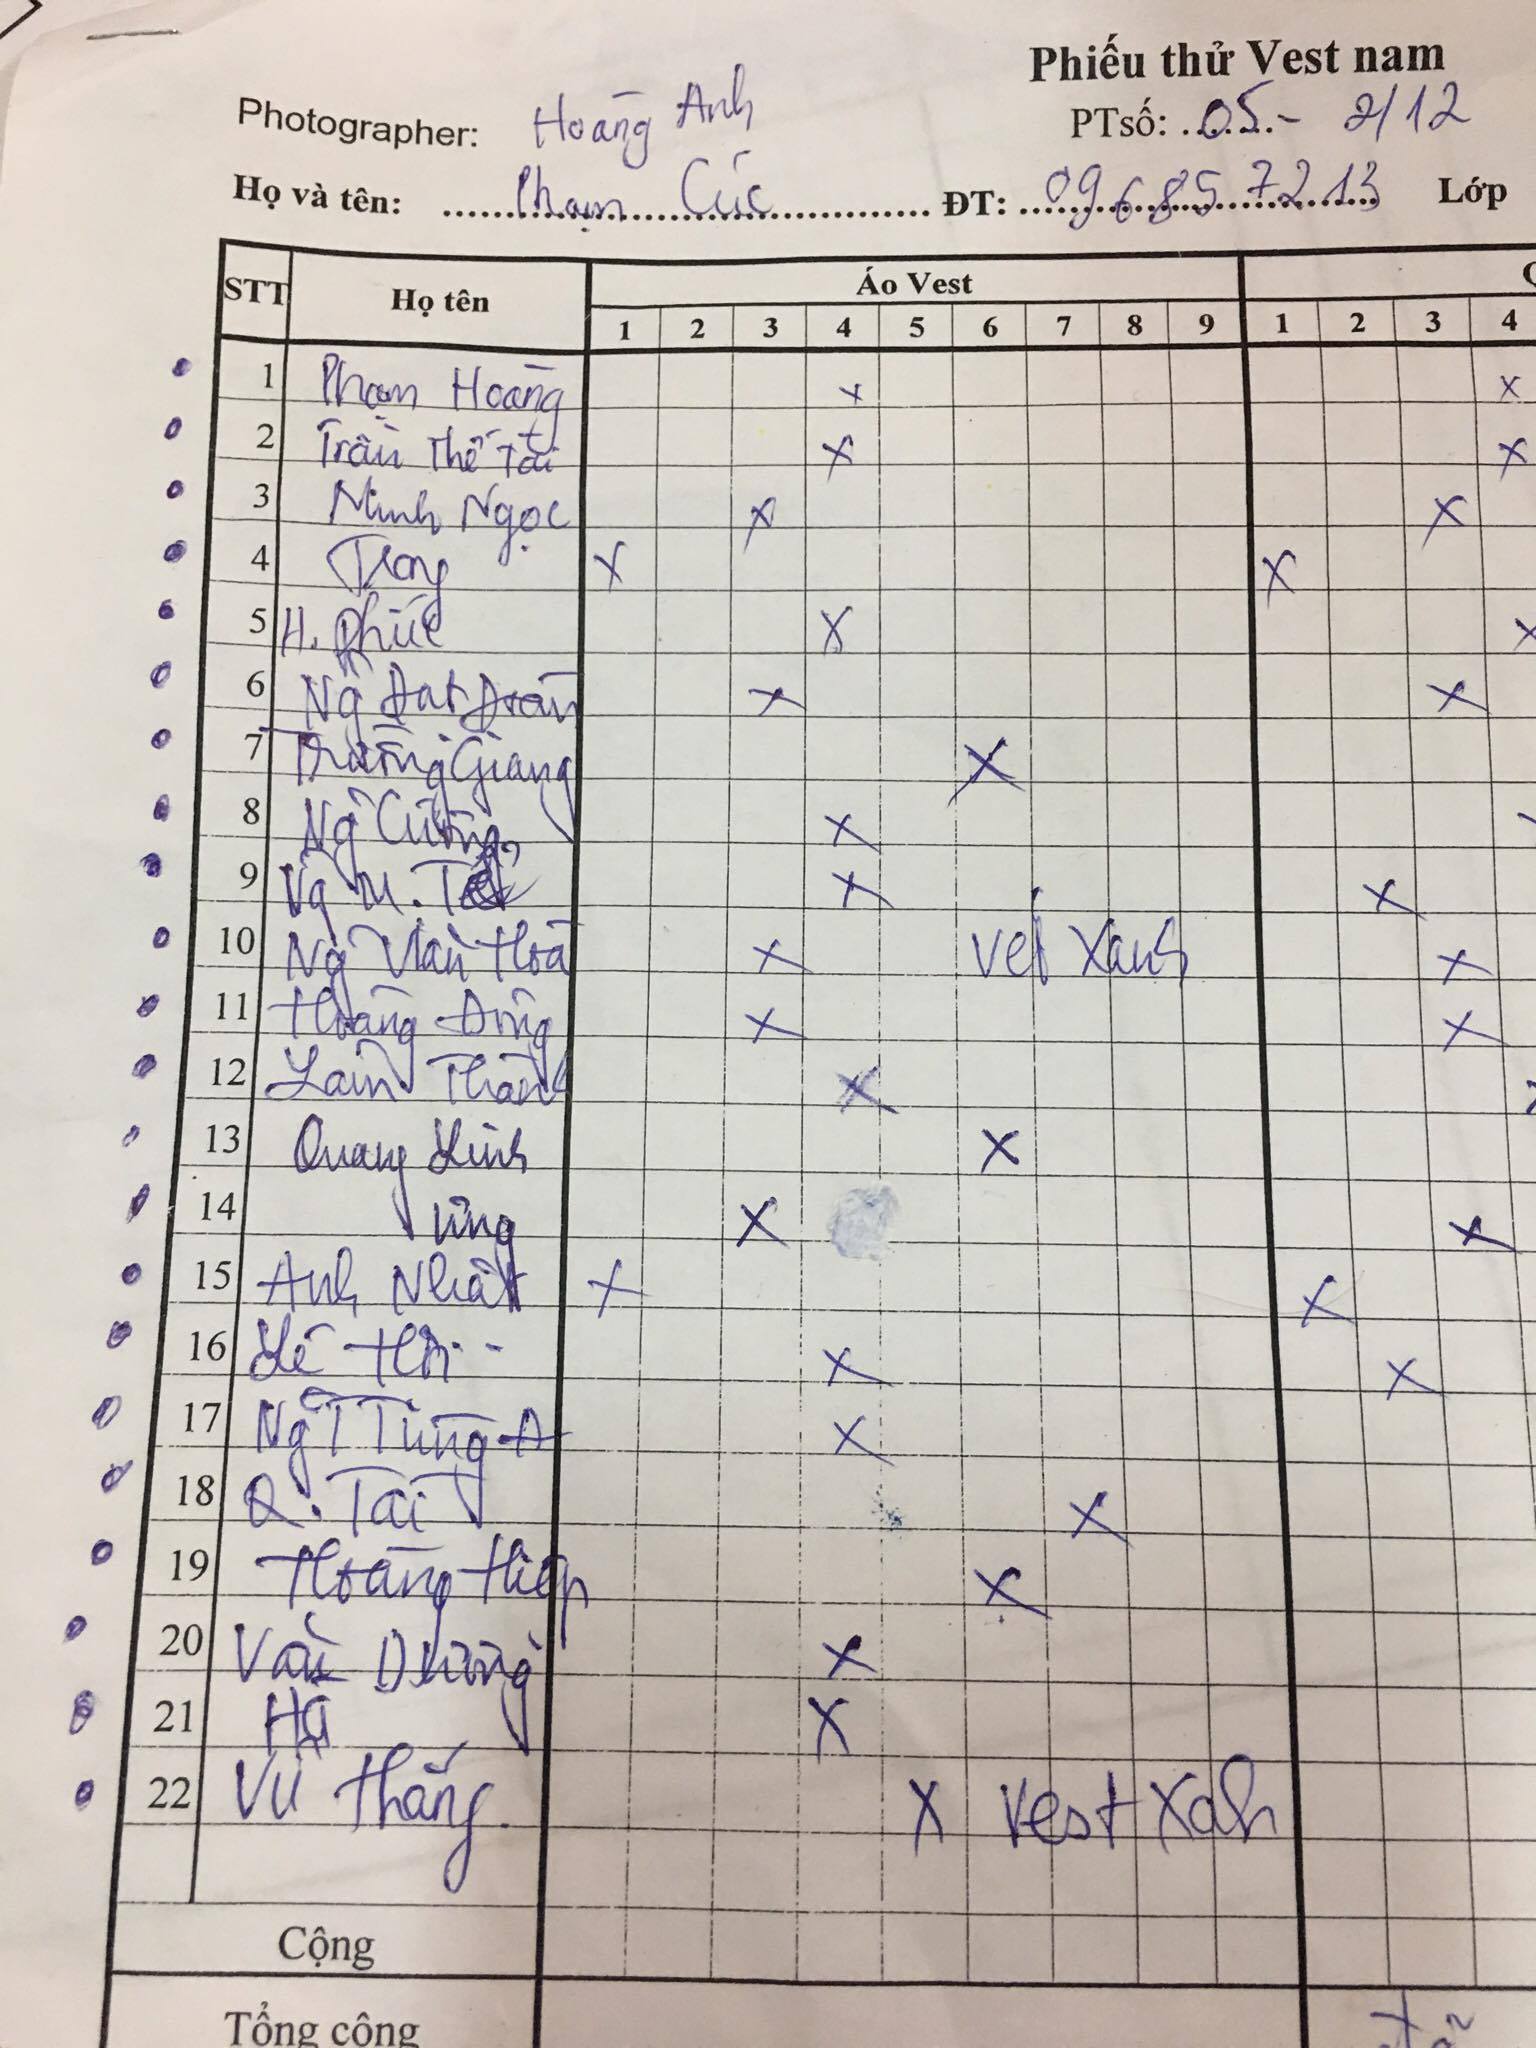 Phiếu thử Vest nam
Photographer: Hoàng Anh PTsố: 05 - 2/12
Họ và tên: Phạm Cúc ĐT: 0968572213 Lớp
STT Họ tên Áo Vest
1 2 3 4 5 6 7 8 9 1 2 3 4
1 Phạm Hoàng x x
2 Trần Thế Tài x x
3 Minh Ngọc x x
4 x x
5 H. Phúc x x
6 Ng Đạt x x
7 Trường Giang x
8 Ng Cường x
9 Ng M. x x
10 Ng Văn Hoà x vet xanh x
11 Hoàng Đông x x
12 Thành x
13 Quang Linh x
14 x x
15 Anh Nhất x x
16 Lê x x
17 Ng T Tùng A x
18 Q. Tài x
19 Hoàng Hiệp x
20 Văn Dương x
21 Hà x
22 Vũ Thắng. x vest xah
Cộng
Tổng cộng